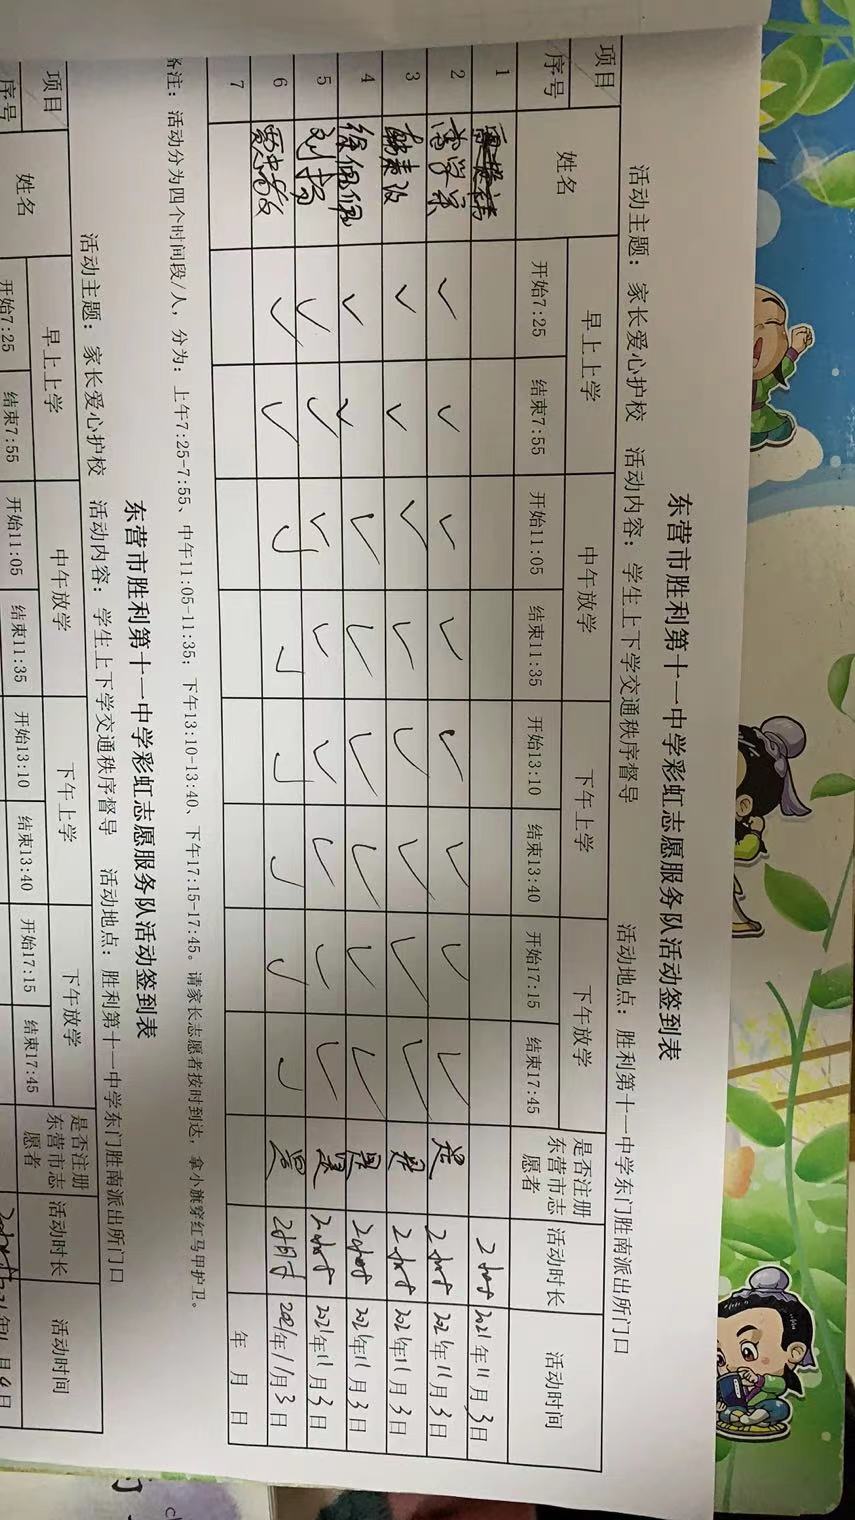 东营市胜利第十一中学彩虹志愿服务队活动签到表
活动主题：家长爱心护校 活动内容：学生上下学交通秩序督导 活动地点：胜利第十一中学东门胜南派出所门口
项目 姓名 早上上学 中午放学 下午上学 下午放学 是否注册东营市志愿者 活动时长 活动时间
序号 开始7:25 结束7:55 开始11:05 结束11:35 开始13:10 结束13:40 开始17:15 结束17:45
1 2小时 2021年11月3日
2 ✓ ✓ ✓ ✓ ✓ ✓ ✓ ✓ 是 2小时 2021年11月3日
3 ✓ ✓ ✓ ✓ ✓ ✓ ✓ ✓ 是 2小时 2021年11月3日
4 徐佩佩 ✓ ✓ ✓ ✓ ✓ ✓ ✓ ✓ 是 2小时 2021年11月3日
5 刘扬 ✓ ✓ ✓ ✓ ✓ ✓ ✓ ✓ 是 2小时 2021年11月3日
6 ✓ ✓ ✓ ✓ ✓ ✓ ✓ ✓ 是 2小时 2021年11月3日
7 年 月 日
备注：活动分为四个时间段/人，分为：上午7:25-7:55、中午11:05-11:35；下午13:10-13:40、下午17:15-17:45。请家长志愿者按时到达，拿小旗穿红马甲护卫。
东营市胜利第十一中学彩虹志愿服务队活动签到表
活动主题：家长爱心护校 活动内容：学生上下学交通秩序督导 活动地点：胜利第十一中学东门胜南派出所门口
项目 姓名 早上上学 中午放学 下午上学 下午放学 是否注册东营市志愿者 活动时长 活动时间
序号 开始7:25 结束7:55 开始11:05 结束11:35 开始13:10 结束13:40 开始17:15 结束17:45